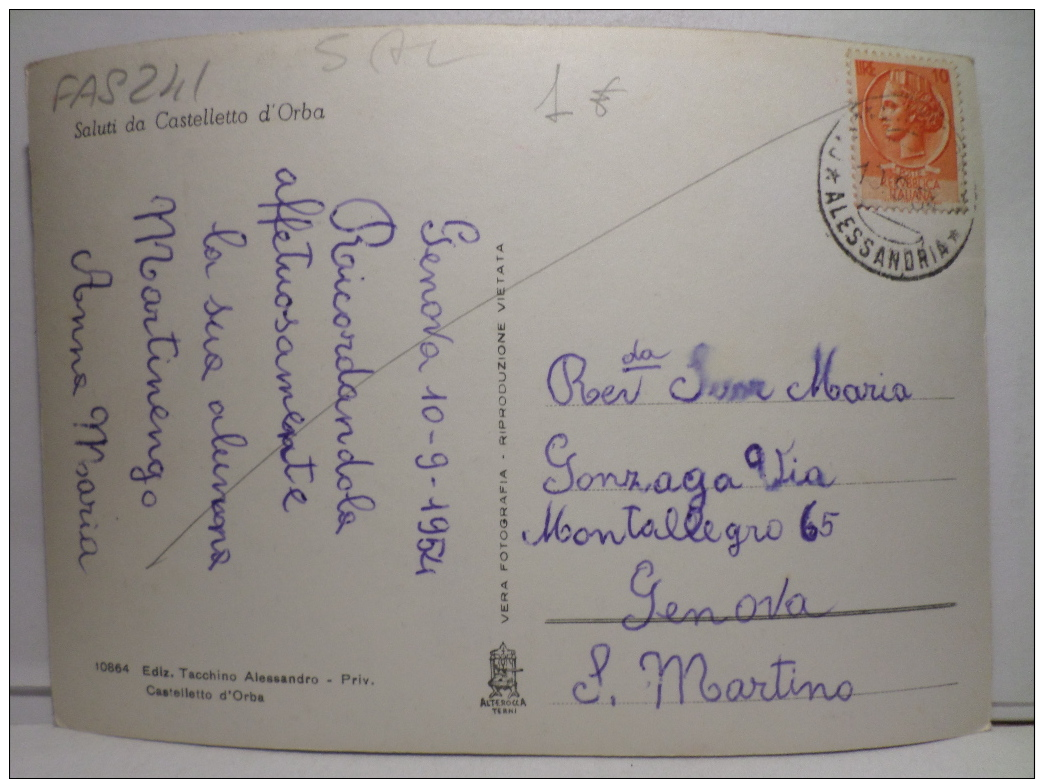 FAS241
SAL
1 €
Saluti da Castelletto d'Orba
Genova 10-9-1954
Raicordandola
affetuosamente
la sua alunna
Martinengo
Anna Maria
10864 Ediz. Tacchino Alessandro - Priv.
Castelletto d'Orba
VERA FOTOGRAFIA - RIPRODUZIONE VIETATA
ALTEROCCA
TERNI
LIRE 10
REPUBBLICA
ITALIANA
* ALESSANDRIA *
Revda Suor Maria
Gonzaga Via
Montallegro 65
Genova
S. Martino